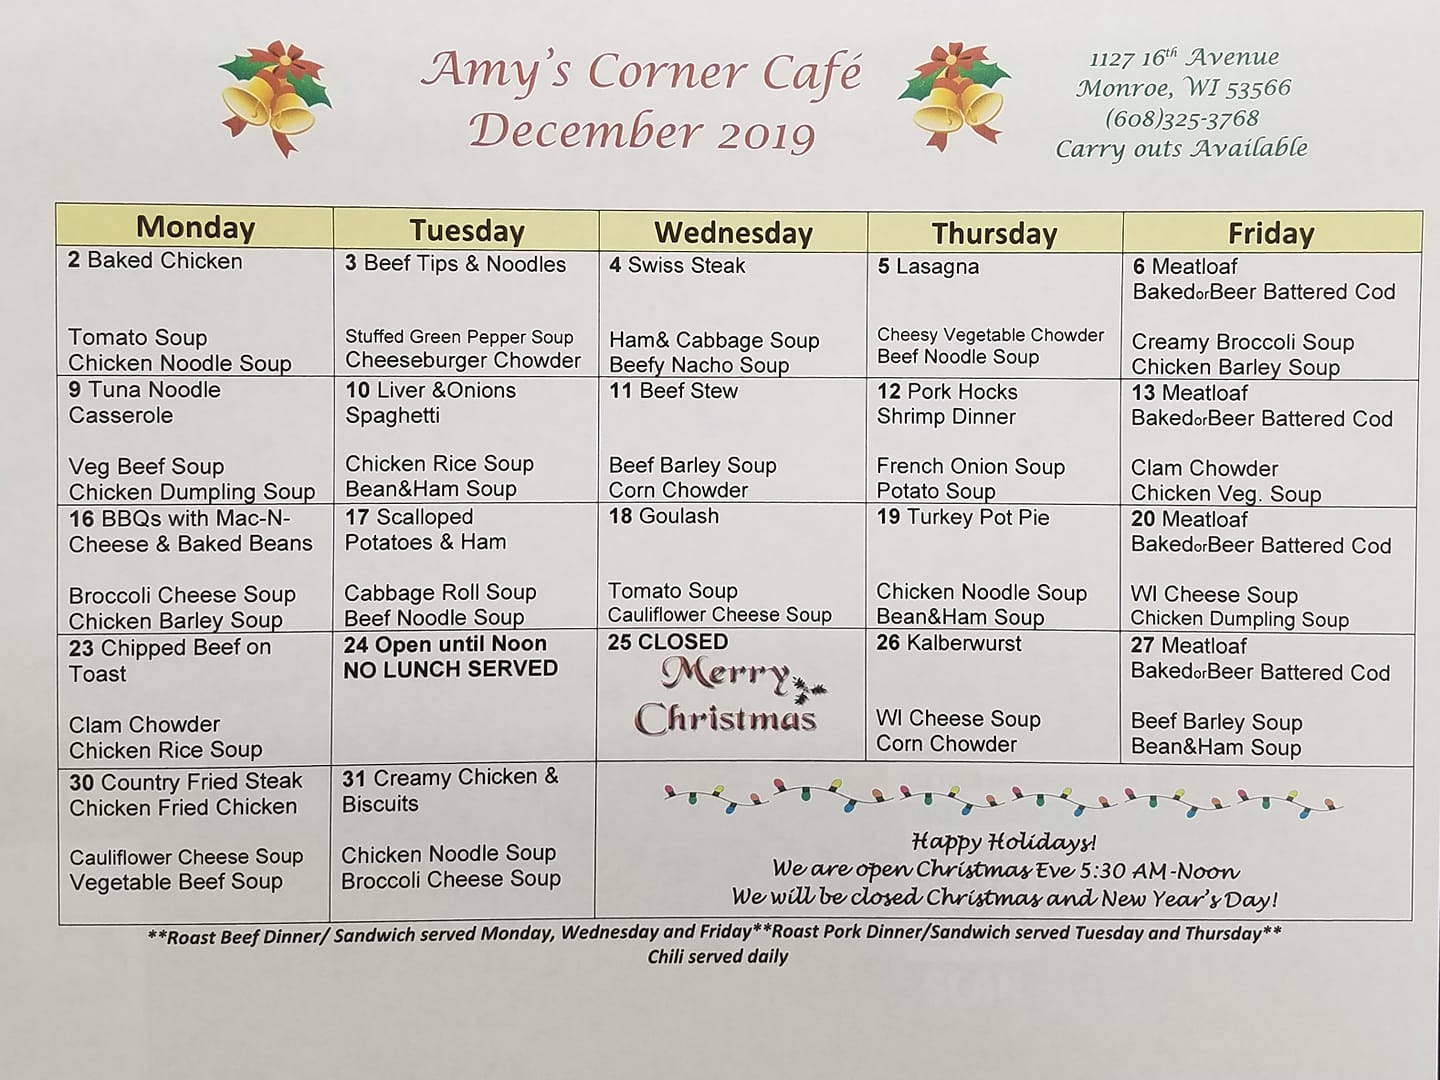 Amy's Corner Café
December 2019
1127 16th Avenue
Monroe, WI 53566
(608)325-3768
Carry outs Available
Monday
Tuesday
Wednesday
Thursday
Friday
2 Baked Chicken
Tomato Soup
Chicken Noodle Soup
3 Beef Tips & Noodles
Stuffed Green Pepper Soup
Cheeseburger Chowder
4 Swiss Steak
Ham& Cabbage Soup
Beefy Nacho Soup
5 Lasagna
Cheesy Vegetable Chowder
Beef Noodle Soup
6 Meatloaf
BakedorBeer Battered Cod
Creamy Broccoli Soup
Chicken Barley Soup
9 Tuna Noodle
Casserole
Veg Beef Soup
Chicken Dumpling Soup
10 Liver &Onions
Spaghetti
Chicken Rice Soup
Bean&Ham Soup
11 Beef Stew
Beef Barley Soup
Corn Chowder
12 Pork Hocks
Shrimp Dinner
French Onion Soup
Potato Soup
13 Meatloaf
BakedorBeer Battered Cod
Clam Chowder
Chicken Veg. Soup
16 BBQs with Mac-N-
Cheese & Baked Beans
Broccoli Cheese Soup
Chicken Barley Soup
17 Scalloped
Potatoes & Ham
Cabbage Roll Soup
Beef Noodle Soup
18 Goulash
Tomato Soup
Cauliflower Cheese Soup
19 Turkey Pot Pie
Chicken Noodle Soup
Bean&Ham Soup
20 Meatloaf
BakedorBeer Battered Cod
WI Cheese Soup
Chicken Dumpling Soup
23 Chipped Beef on
Toast
Clam Chowder
Chicken Rice Soup
24 Open until Noon
NO LUNCH SERVED
25 CLOSED
Merry
Christmas
26 Kalberwurst
WI Cheese Soup
Corn Chowder
27 Meatloaf
BakedorBeer Battered Cod
Beef Barley Soup
Bean&Ham Soup
30 Country Fried Steak
Chicken Fried Chicken
Cauliflower Cheese Soup
Vegetable Beef Soup
31 Creamy Chicken &
Biscuits
Chicken Noodle Soup
Broccoli Cheese Soup
Happy Holidays!
We are open Christmas Eve 5:30 AM-Noon
We will be closed Christmas and New Year's Day!
**Roast Beef Dinner/ Sandwich served Monday, Wednesday and Friday**Roast Pork Dinner/Sandwich served Tuesday and Thursday**
Chili served daily